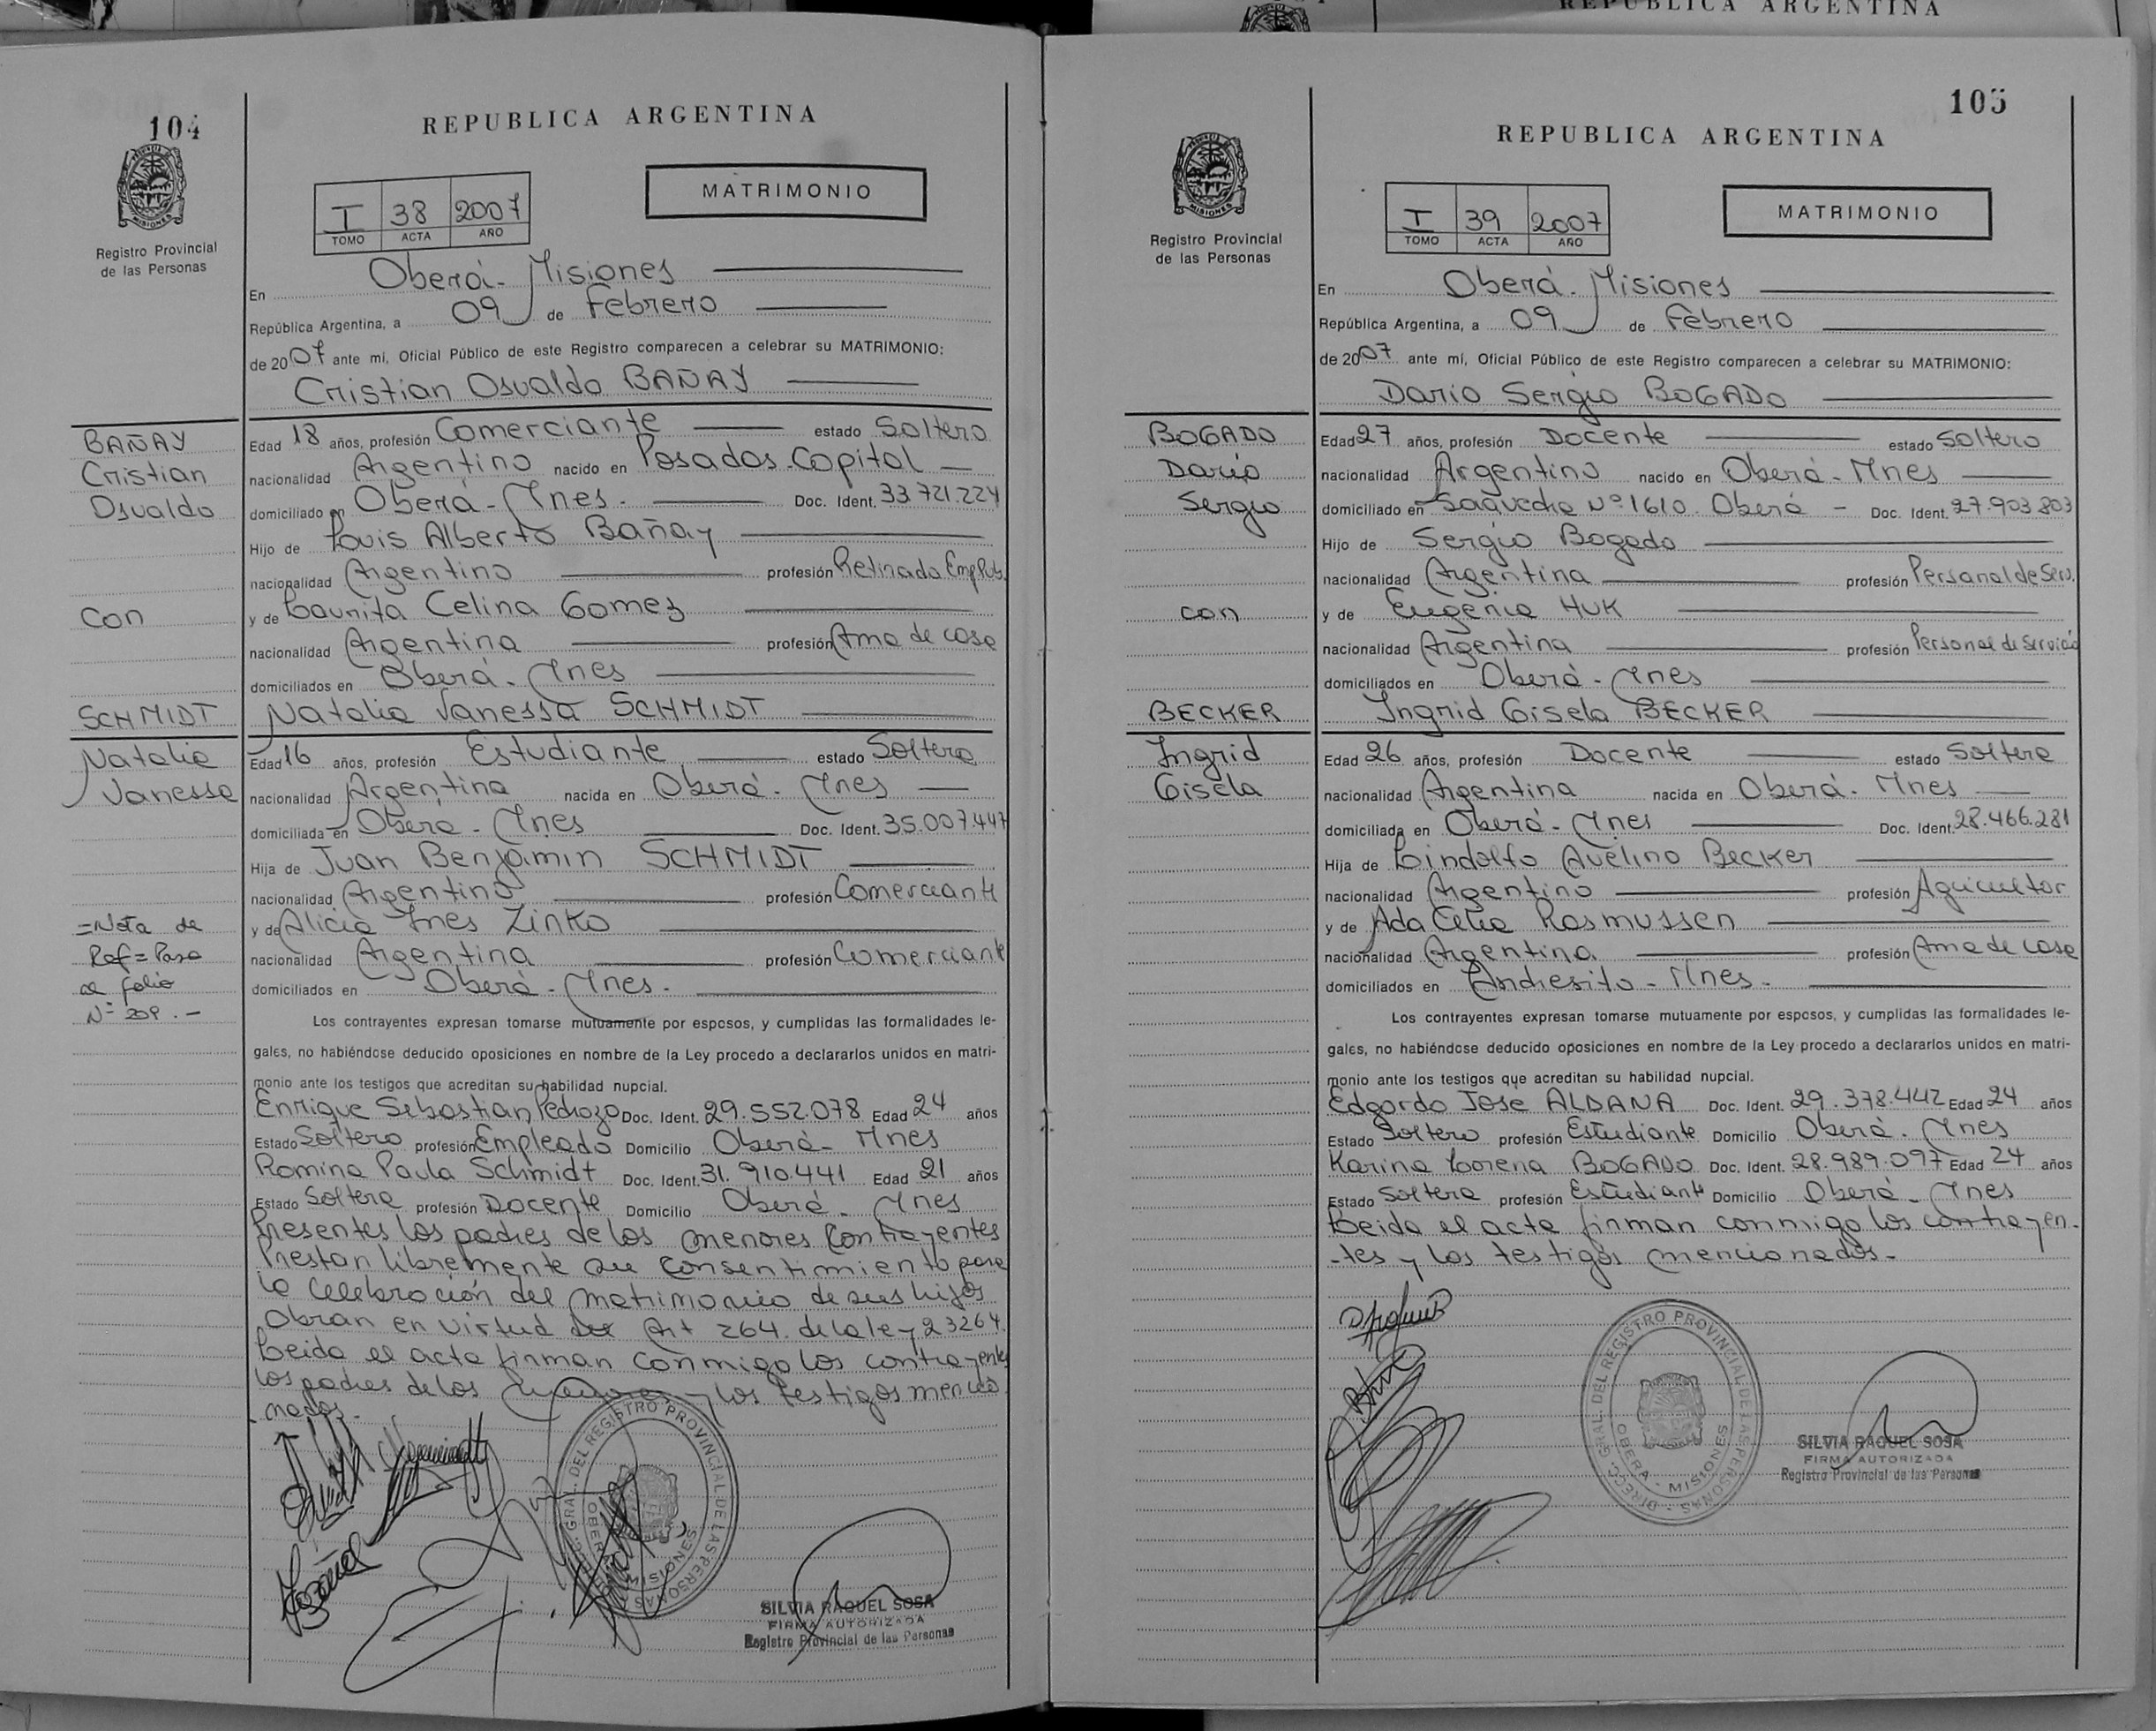 REPUBLICA ARGENTINA
104
REPUBLICA ARGENTINA
MISIONES
Registro Provincial
de las Personas
I 38 2007
TOMO ACTA AÑO
MATRIMONIO
En Oberá - Misiones
República Argentina, a 09 de Febrero
de 2007 ante mí, Oficial Público de este Registro comparecen a celebrar su MATRIMONIO:
Cristian Osvaldo BAÑAY
BAÑAY
Cristian
Osvaldo
con
SCHMIDT
Natalia
Vanessa
=Nota de
Ref = Pasa
al folio
Nº 209.-
Edad 18 años, profesión Comerciante estado Soltero
nacionalidad Argentino nacido en Posadas Capital
domiciliado en Oberá - Mnes. Doc. Ident. 33.721.224
Hijo de Louis Alberto Bañay
nacionalidad Argentino profesión Retirado Emp. Pub.
y de Laurita Celina Gomez
nacionalidad Argentina profesión Ama de casa
domiciliados en Oberá - Mnes
Natalia Vanessa SCHMIDT
Edad 16 años, profesión Estudiante estado Soltera
nacionalidad Argentina nacida en Oberá - Mnes
domiciliada en Oberá - Mnes Doc. Ident. 35.007.447
Hija de Juan Benjamin SCHMIDT
nacionalidad Argentino profesión Comerciante
y de Alicia Ines Zinko
nacionalidad Argentina profesión Comerciante
domiciliados en Oberá - Mnes.
Los contrayentes expresan tomarse mutuamente por esposos, y cumplidas las formalidades le-
gales, no habiéndose deducido oposiciones en nombre de la Ley procedo a declararlos unidos en matri-
monio ante los testigos que acreditan su habilidad nupcial.
Enrique Sebastian Pedrozo Doc. Ident. 29.552.078 Edad 24 años
Estado Soltero profesión Empleado Domicilio Oberá - Mnes
Romina Paula Schmidt Doc. Ident. 31.910.441 Edad 21 años
Estado Soltera profesión Docente Domicilio Oberá - Mnes
Presentes los padres de los menores contrayentes
Prestan libremente su consentimiento para
la celebración del matrimonio de sus hijos
Obran en virtud del Art 264. de la ley 23264.
Leida el acta firman conmigo los contrayentes
los padres de los menores y los testigos mencio
nados.-
DIRECC. GRAL. DEL REGISTRO PROVINCIAL DE LAS PERSONAS
OBERA - MISIONES
SILVIA RAQUEL SOSA
FIRMA AUTORIZADA
Registro Provincial de las Personas
105
REPUBLICA ARGENTINA
MISIONES
Registro Provincial
de las Personas
I 39 2007
TOMO ACTA AÑO
MATRIMONIO
En Oberá - Misiones
República Argentina, a 09 de Febrero
de 2007 ante mí, Oficial Público de este Registro comparecen a celebrar su MATRIMONIO:
Dario Sergio BOGADO
BOGADO
Darío
Sergio
con
BECKER
Ingrid
Gisela
Edad 27 años, profesión Docente estado Soltero
nacionalidad Argentino nacido en Oberá - Mnes
domiciliado en Saavedra Nº 1610. Oberá - Doc. Ident. 27.903.803
Hijo de Sergio Bogado
nacionalidad Argentina profesión Personal de Serv.
y de Eugenia HUK
nacionalidad Argentina profesión Personal de Servicio
domiciliados en Oberá - Mnes
Ingrid Gisela BECKER
Edad 26 años, profesión Docente estado Soltera
nacionalidad Argentina nacida en Oberá - Mnes
domiciliada en Oberá - Mnes Doc. Ident. 28.466.281
Hija de Lindolfo Avelino Becker
nacionalidad Argentino profesión Agricultor
y de Ada Celia Rasmussen
nacionalidad Argentina profesión Ama de casa
domiciliados en Andresito - Mnes.
Los contrayentes expresan tomarse mutuamente por esposos, y cumplidas las formalidades le-
gales, no habiéndose deducido oposiciones en nombre de la Ley procedo a declararlos unidos en matri-
monio ante los testigos que acreditan su habilidad nupcial.
Edgardo Jose ALDANA Doc. Ident. 29.378.442 Edad 24 años
Estado Soltero profesión Estudiante Domicilio Oberá - Mnes
Karina Lorena BOGADO Doc. Ident. 28.989.097 Edad 24 años
Estado Soltera profesión Estudiante Domicilio Oberá - Mnes
Leida el acta firman conmigo los contrayen-
-tes y los testigos mencionados.-
DIRECC. GRAL. DEL REGISTRO PROVINCIAL DE LAS PERSONAS
OBERA - MISIONES
SILVIA RAQUEL SOSA
FIRMA AUTORIZADA
Registro Provincial de las Personas